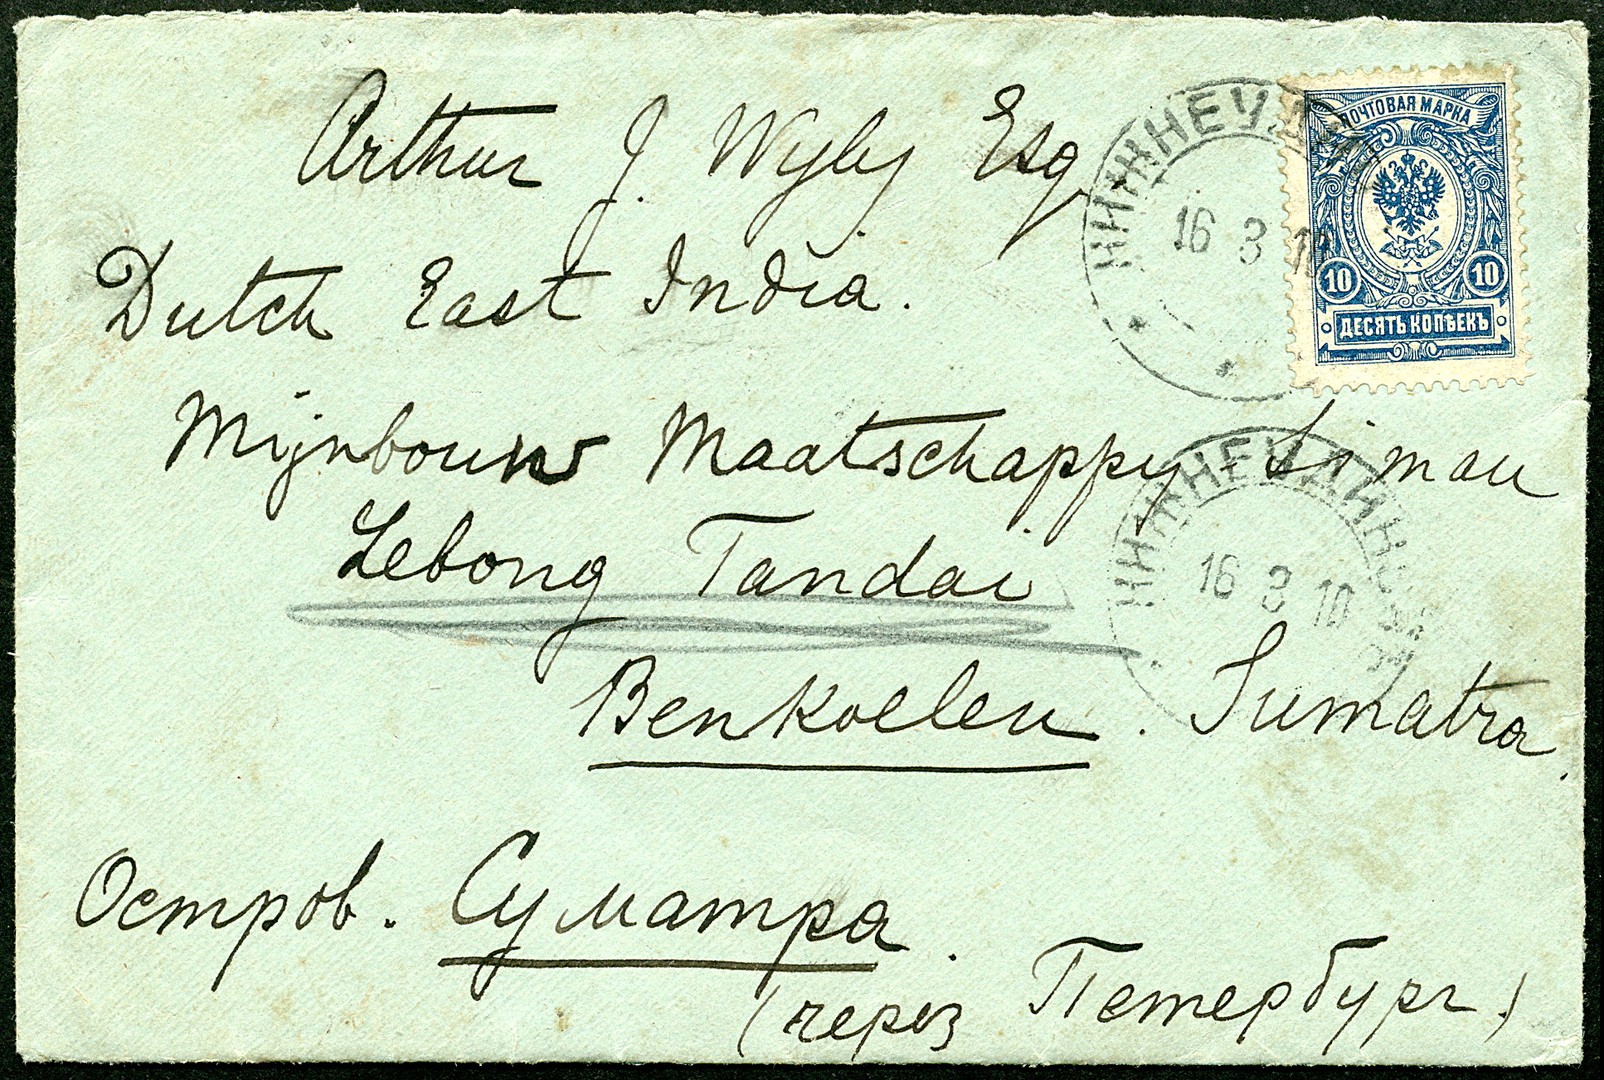 Arthur J. Wyly Esq
Dutch East India.
Mijnbouw Maatschappy Simau
Lebong Tandai
Benkoelen. Sumatra.
Остров. Суматра
(через Петербург.)
ПОЧТОВАЯ МАРКА
10 10
ДЕСЯТЬ КОПѢЕКЪ
НИЖНЕУДИН
16 3 10
НИЖНЕУДИНСК
16 3 10